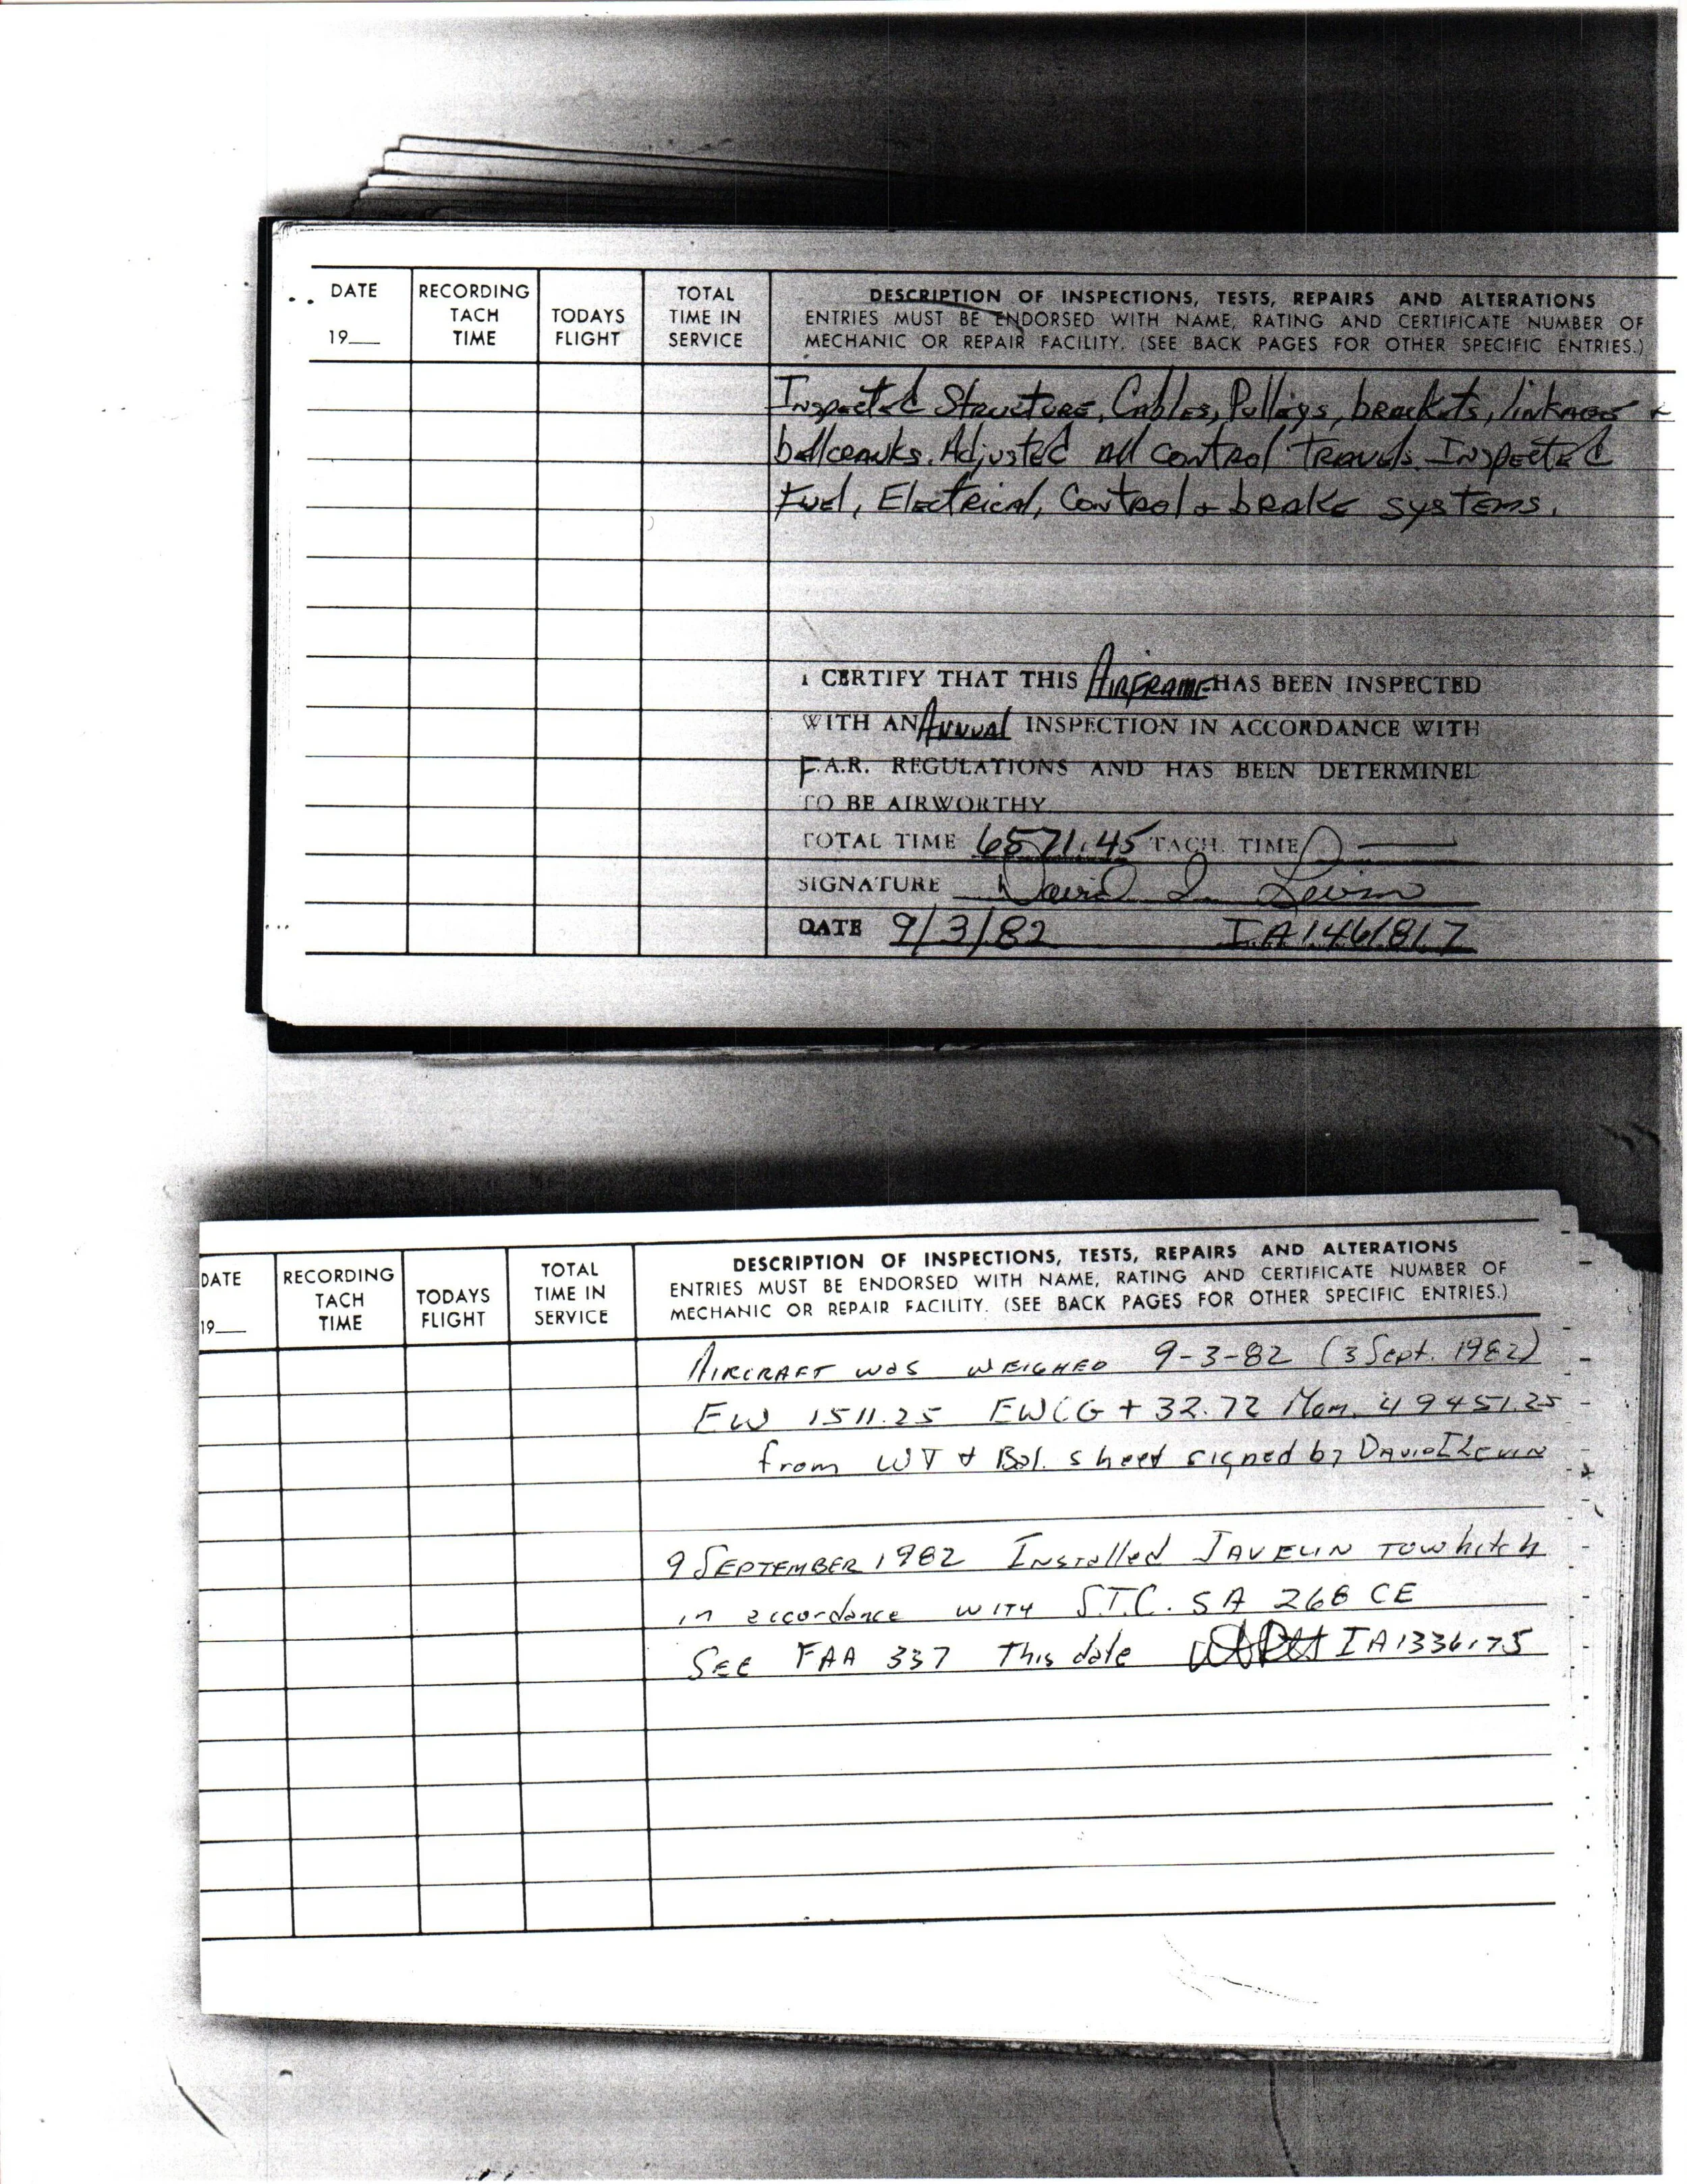 DATE
19__
RECORDING
TACH
TIME
TODAYS
FLIGHT
TOTAL
TIME IN
SERVICE
DESCRIPTION OF INSPECTIONS, TESTS, REPAIRS AND ALTERATIONS
ENTRIES MUST BE ENDORSED WITH NAME, RATING AND CERTIFICATE NUMBER OF
MECHANIC OR REPAIR FACILITY. (SEE BACK PAGES FOR OTHER SPECIFIC ENTRIES.)
Inspected Structure, Cables, Pulleys, brackets, linkages &
bellcranks. Adjusted all control travels. Inspected
Fuel, Electrical, Control & brake systems.
I CERTIFY THAT THIS AIRFRAME HAS BEEN INSPECTED
WITH AN Annual INSPECTION IN ACCORDANCE WITH
F.A.R. REGULATIONS AND HAS BEEN DETERMINED
TO BE AIRWORTHY
TOTAL TIME 6571.45 TACH. TIME
SIGNATURE David I. Levin
DATE 9/3/82 IA1461817
DATE
19__
RECORDING
TACH
TIME
TODAYS
FLIGHT
TOTAL
TIME IN
SERVICE
DESCRIPTION OF INSPECTIONS, TESTS, REPAIRS AND ALTERATIONS
ENTRIES MUST BE ENDORSED WITH NAME, RATING AND CERTIFICATE NUMBER OF
MECHANIC OR REPAIR FACILITY. (SEE BACK PAGES FOR OTHER SPECIFIC ENTRIES.)
AIRCRAFT was WEIGHED 9-3-82 (3 Sept. 1982)
EW 1511.25 EWCG + 32.72 Mom. 49451.25
from WT & Bal. sheet signed by DAVID I LEVIN
9 SEPTEMBER 1982 Installed JAVELIN TOW hitch
in accordance WITH S.T.C. SA 268 CE
SEE FAA 337 This date IA1336175